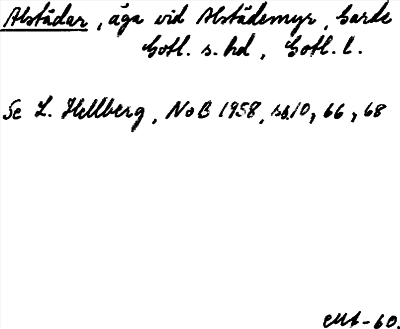 Alstädar, äga vid Alstädemyr, Garde
Gotl. s. hd, Gotl. l.
Se L. Hellberg, NoB 1958, ss. 10, 66, 68
-60.